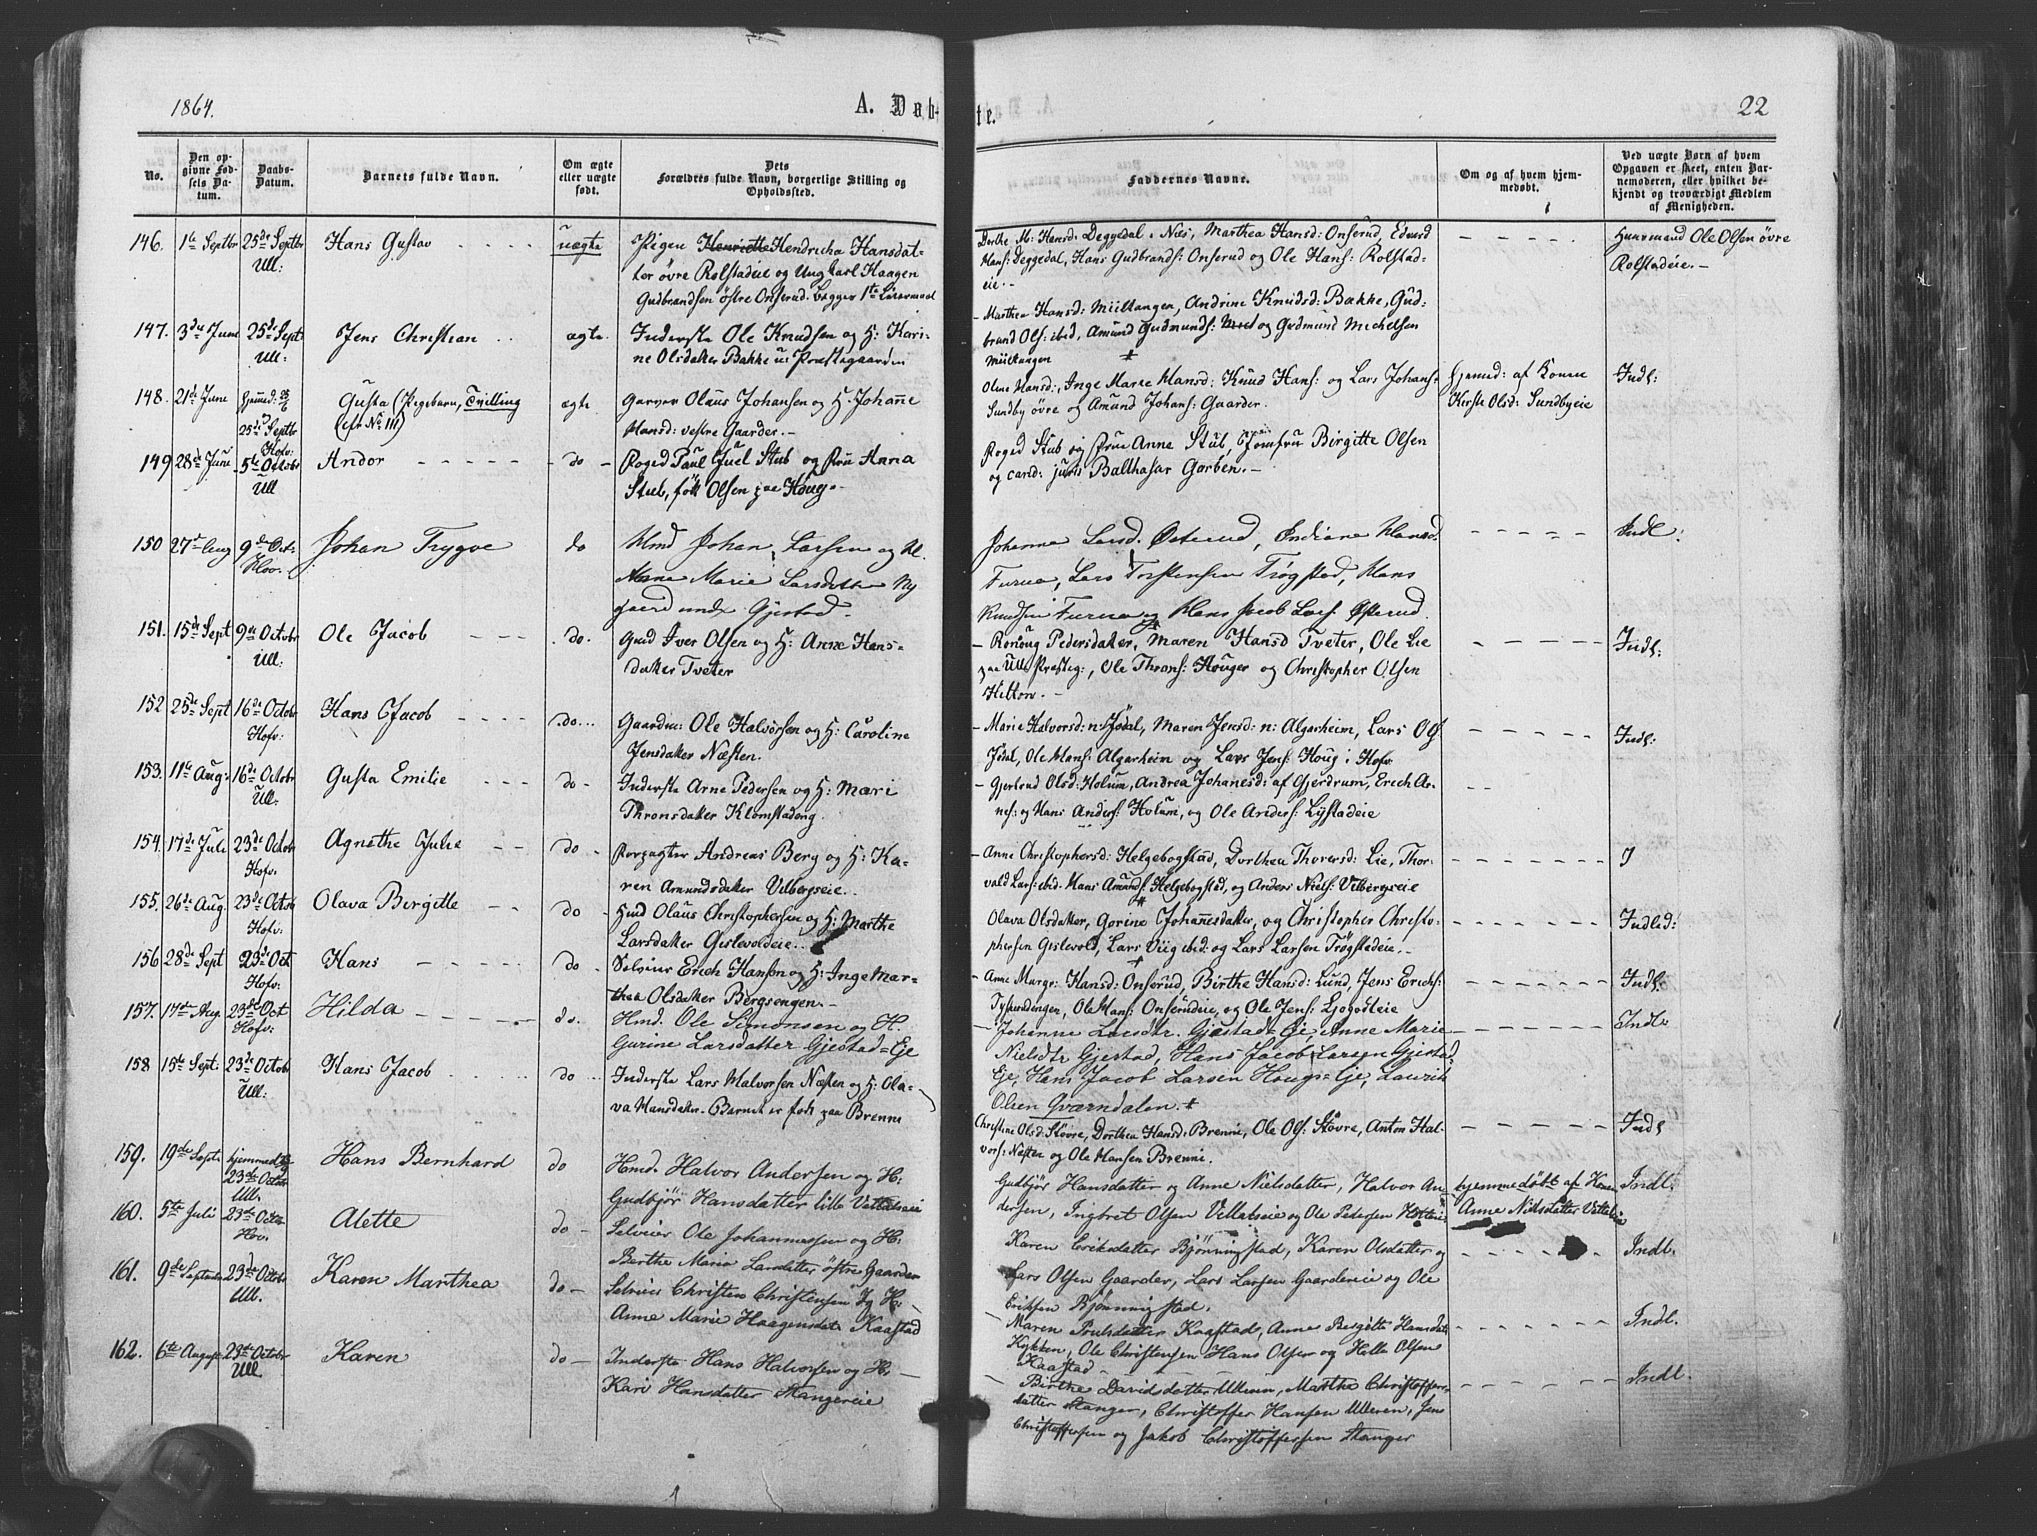 1864.
A. Døb-
te.
22
No.
Den op-
givne Fød-
sels Da-
tum.
Daabs-
Datum.
Barnets fulde Navn.
Om ægte
eller uægte
født.
Dets
Forældres fulde Navn, borgerlige Stilling og
Opholdssted.
Faddernes Navne.
Om og af hvem hjem-
medøbt.
Ved uægte Børn af hvem
Opgaven er skeet, enten Bar-
nemoderen, eller hvilket be-
kjendt og troværdigt Medlem
af Menigheden.
146. 1te Septbr 25de Septbr Hans Gustav uægte Pigen Henriette Hendricha Hansdat-
Ull: ter øvre Rolstadeie og Ungkarl Haagen
Gudbrandsen østre Onserud. Begges 1te Leiermaal
Dorthe M: Hansd: Deggedal i Næs, Marthea Hansd: Onserud, Edvard
Hans: Deggedal, Hans Gudbrands: Onserud og Ole Hans: Rolstad-
eie.-
Huusmand Ole Olsen øvre
Rolstadeie.-
147. 3die June 25de Sept: Jens Christian ægte. Inderste Ole Knudsen og H: Kari-
Ull: ne Olsdatter Bakke u: Præstegaarden
- Marthea Hansd: Miiltangen, Andrine Knudsd: Bakke, Gud-
brand Ols: ibid, Amund Gudmunds: og Gudmund Michelsen
Miiltangen
148. 21de June Hjemmed:
25de Septbr
Hofv:
Gusta (Pigebarn, Tvilling
(cfr No 111)
ægte Garver Olaus Johansen og H. Johanne
Hansd: vestre Gaarder.-
Oline Hansd:, Inge Marie Hansd: Knud Hans: og Lars Johans:
Sundby øvre og Amund Johans: Gaarder.
Hjemmed: af Konen
Kirsti Olsd: Sundbyeie
Indl:
149 28de Juni 5te Octobr Andor do - Foged Paul Juel Stub og Frue Anna
Ull Stub, født Olsen paa Houg.-
Foged Stub og Frue Anne Stub, Jomfru Birgitte Olsen
og cand: juris Balthasar Garben.-
150 27de Aug 9de Oct: Johan Trygve do Hmd Johan Larsen og H.
Hov: Anne Marie Larsdatter Ny
gaard unde Gjestad.
Johanne Larsd. Østerud, Indiane Hansd.
Furua, Lars Torstensen Trøgstad, Hans
Knudsen Furua og Hans Jacob Lars: Østerud.
Indl:
151. 15de Sept 9de Octobr Ole Jacob do. Gmd Iver Olsen og H: Anne Hans-
Ull: datter Tveter
- Rønoug Pedersdatter, Maren Hansd Tveter, Ole Lie
paa Ull: Præsteg:, Ole Throns: Houger og Christopher Olsen
Hilton.-
Indl:
152 25de Sept 16de Octobr Hans Jacob do... Gaardm: Ole Halvorsen og H: Caroline
Hofv: Jensdatter Næsten.
- Marie Halvorsd: n: Jødal, Maren Jensd: n: Algarheim, Lars Ols:
Jødal, Ole Hans: Algarheim og Lars Jens: Houg i Hofv:
Indl:
153. 11te Aug: 16de Octobr Gusta Emilie do - Inderste Arne Pedersen og H: Mari
Ull: Thronsdatter Klomstadeng.
- Gjertrud Olsd: Holum, Andrea Johanesd: af Gjerdrum, Erich Ar-
nes: og Hans Anders: Holum, og Ole Anders: Lystadeie
154. 17de Juli 23de Octobr Agnethe Julie do - Forpagter Andreas Berg og H: Ka-
Hofv: ren Amundsdatter Vilbergseie.
- Anne Christophersd: Helgebogstad, Dorthea Thoresd: Lie, Thor-
vald Lars: ibid. Hans Amunds: Helgebogstad, og Anders Niels: Vilbergseie
I
155. 26de Aug. 23de Octobr Olava Birgitte do - Hmd Olaus Christophersen og H: Marthe
Hofv: Larsdatter Gislevoldeie.
Olava Olsdatter, Gorine Johannesdatter, og Christopher Christo-
phersen Gislevold, Lars Viig ibid: og Lars Larsen Trøgstadeie.-
Indled:
156 28de Sept 23de Oct Hans do - Selveier Erich Hansen og H: Inge Mar-
Hofv: thea Olsdatter Bergsengen.-
- Anne Margr: Hansd: Onserud, Birthe Hansd: Lund, Jens Erichs:
, Ole Hans: Onserudeie, og Ole Jens: Ljøgodteie
Indl:
157. 17de Aug. 23de Oct Hilda do. Hmd. Ole Simonsen og H.
Hofv: Gurine Larsdatter Gjestad=Eje
- Johanne Larsdtr. Gjestad=Eje, Anne Marie
Nielsdtr Gjestad, Hans Jacob Larsen Gjestad
Eje, Hans Jacob Larsen Hougs=Eje, Laurits
Olsen Qværndalen.
Indl.
158 15de Sept: 23de Octobr Hans Jacob do... Inderste Lars Halvorsen Næsten og H: Ola-
Ull: va Hansdatter. Barnet er født paa Brenne
Christine Olsd: Støvre, Dorthea Hansd: Brenni, Ole Ols: Støvre, Anton Hal-
vors: Næsten og Ole Hansen Brenni.
Indl
159. 19de Sept. hjemmedøbt
23de Octobr
Ull.
Hans Bernhard do Hmd. Halvor Andersen og H:
Gudbjør Hansdatter lille Vettalseie
Gudbjør Hansdatter og Anne Nielsdatter, Halvor An-
dersen, Ingbret Olsen Vettalseie og Ole Pedersen
hjemmedøbt af Konen
Anne Nielsdatter Vettalseie
Indl.
160. 5te Juli 23de Octobr Alette do - Selveier Ole Johannessen og H:
Hov. Berthe Maria Larsdatter østre Gaarder
Karen Eriksdatter Bjønningstad, Karen Olsdatter og
Lars Olsen Gaarder, Lars Larsen Gaardereie og Ole
Eriksen Bjønningstad.
Indl.
161. 9de September 23de Octobr Karen Marthea do - Selveier Christen Christensen og H:
Ull. Anne Marie Haagensdat. Kaastad
- Maren Poulsdatter Kaastad, Anne Bergitte Hansdatr
Kykken, Ole Christensen Hans Olsen og Helle Olsen
Kaastad
Indl.
162. 6te August 23de Octobr Karen do - Inderste Hans Halvorsen og H:
Ull. Kari Hansdatter Stangereie
- Birthe Davidsdatter Ulleren, Marthe Christoffers-
datter Stanger, Christoffer Hansen Ulleren, Jens
Christoffersen og Jakob Christoffersen Stanger
Indl.